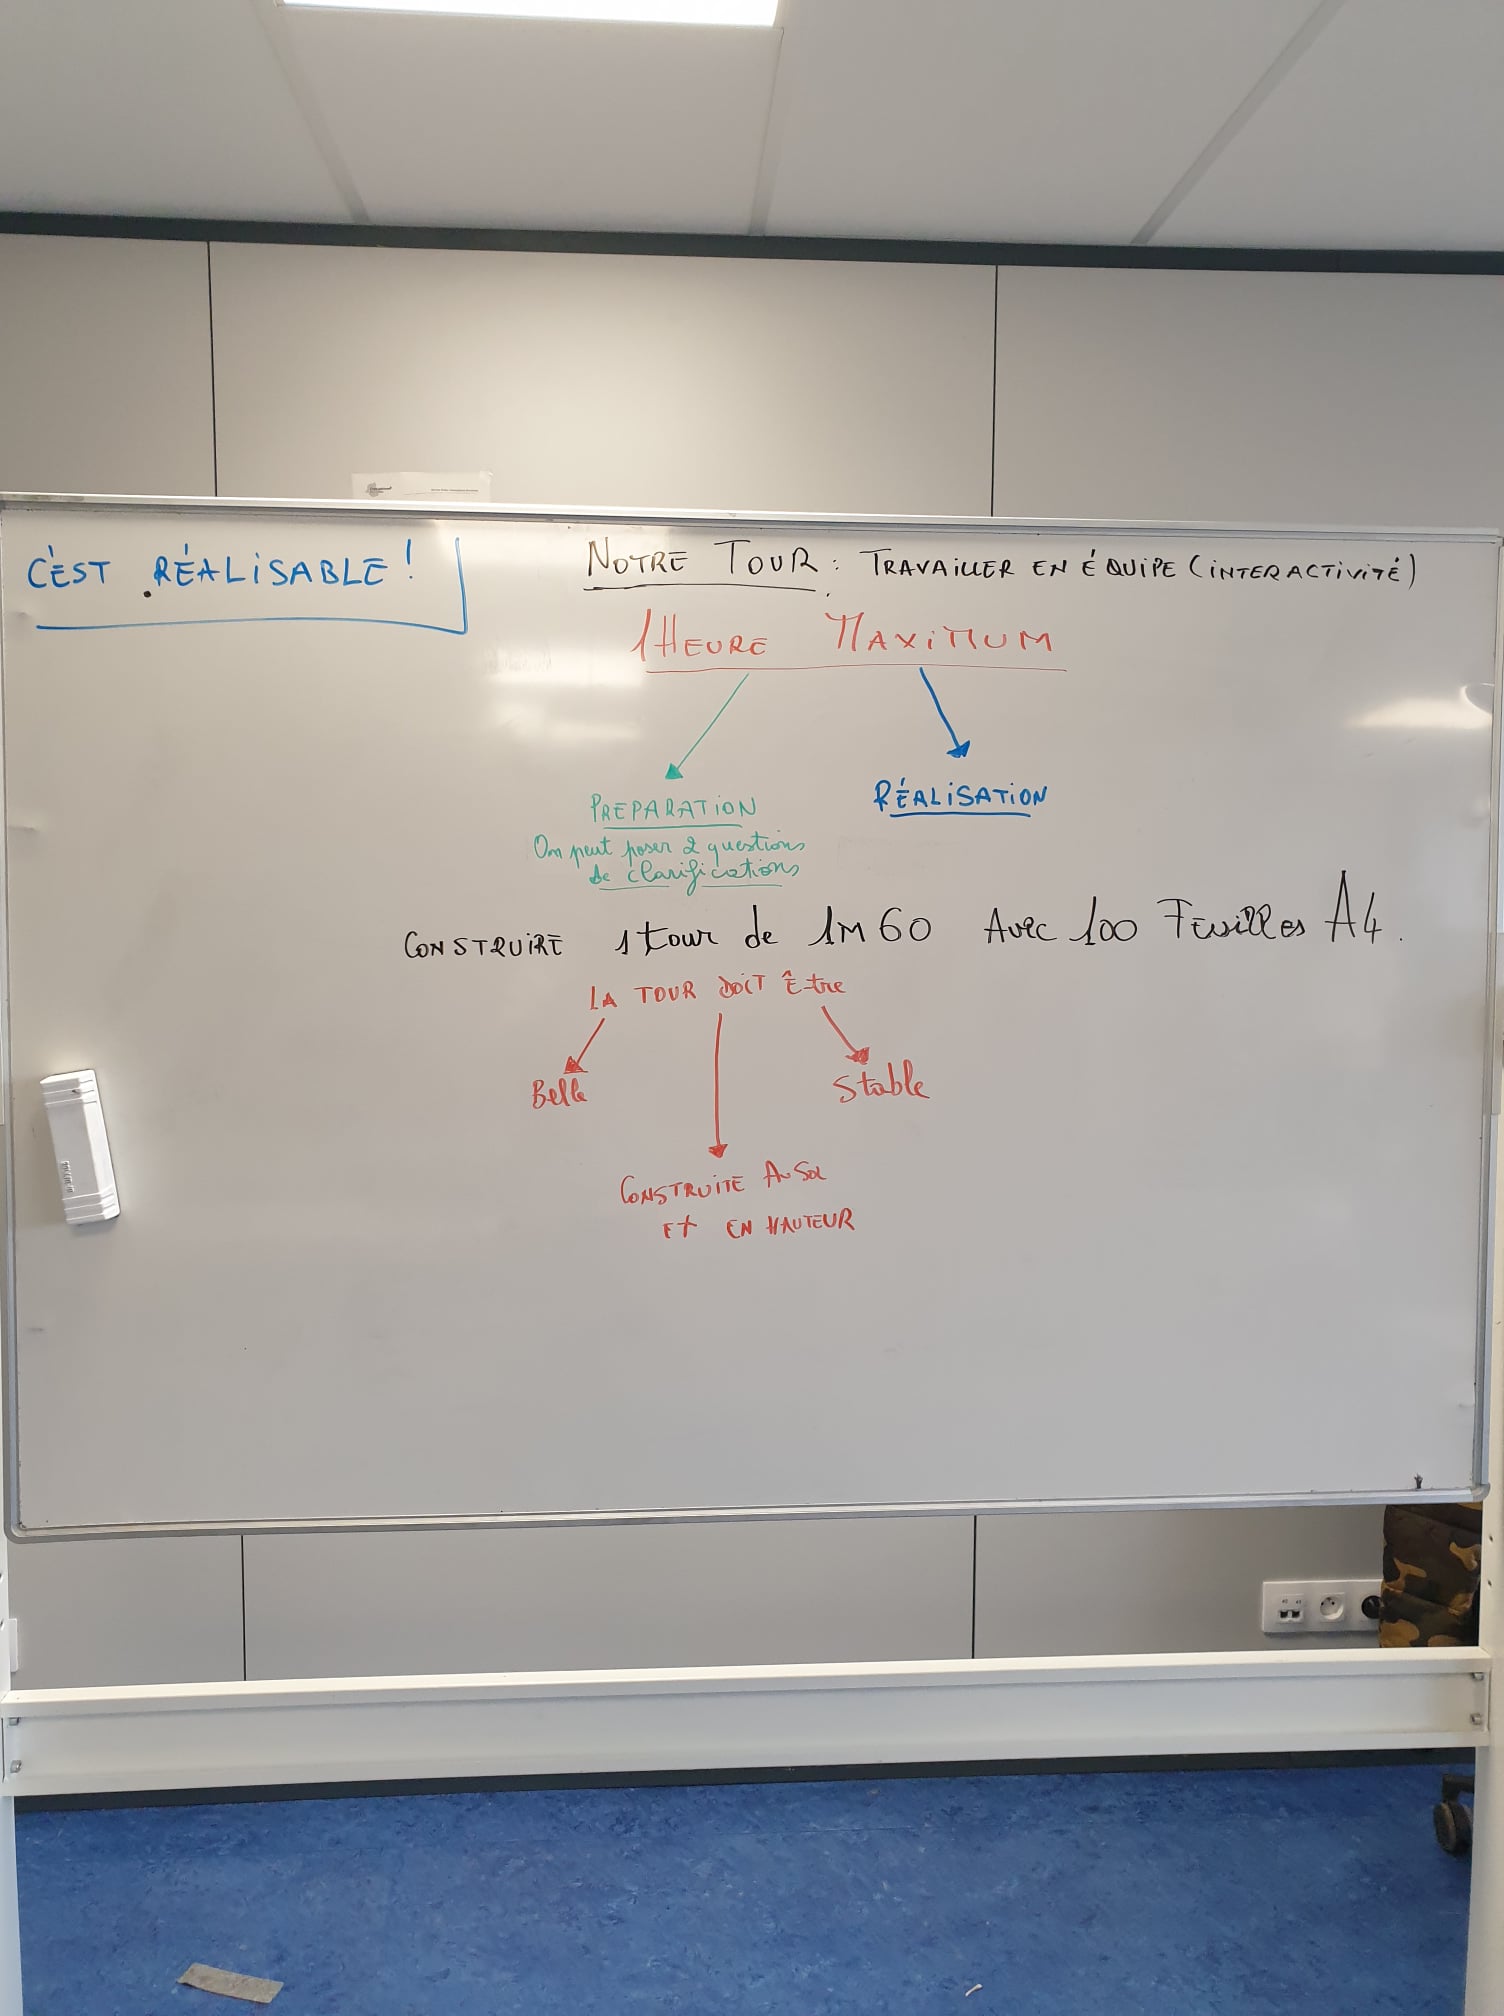 C'EST RÉALISABLE !
NOTRE TOUR : TRAVAILLER EN ÉQUIPE (INTERACTIVITÉ)
1 HEURE MAXIMUM
PREPARATION
RÉALISATION
On peut poser 2 questions
de clarifications
CONSTRUIRE 1 tour de 1M60 Avec 100 Feuilles A4.
LA TOUR DOIT Être
Belle
Stable
CONSTRUITE AU SOL
ET EN HAUTEUR